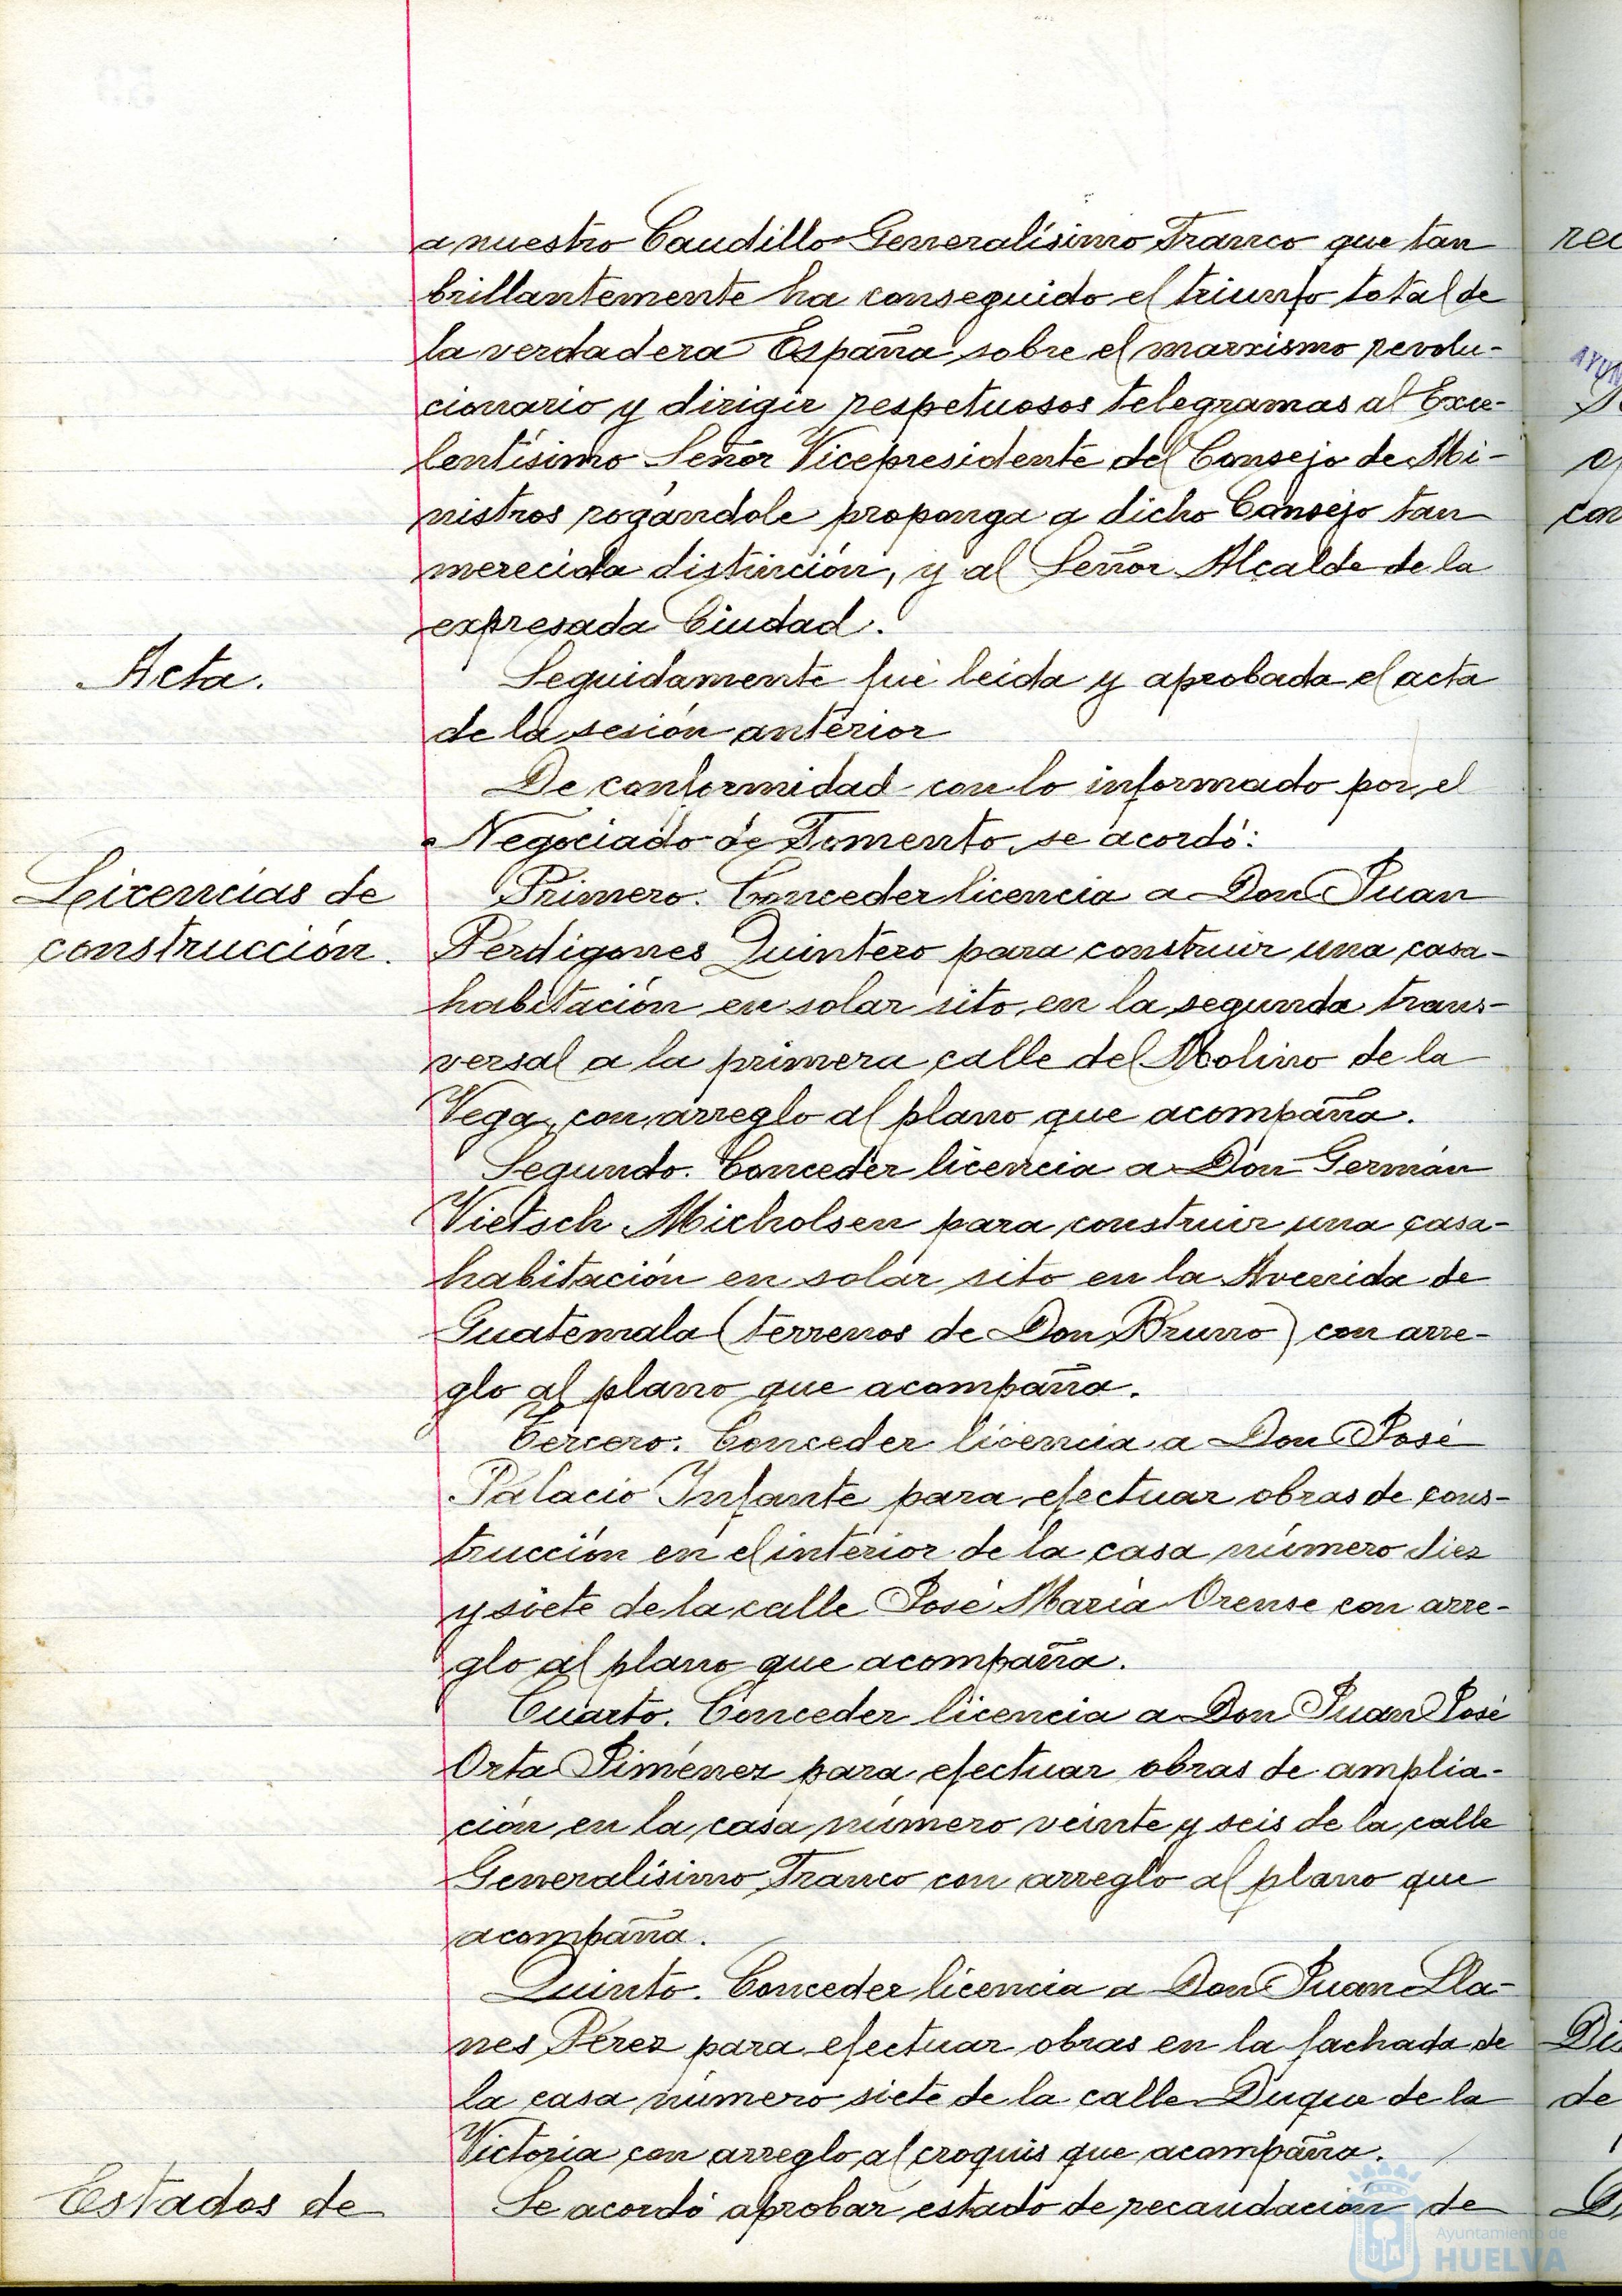 a nuestro Caudillo Generalísimo Franco que tan
brillantemente ha conseguido el triunfo total de
la verdadera España sobre el marxismo revolu-
cionario y dirigir respetuosos telegramas al Exce-
lentísimo Señor Vicepresidente del Consejo de Mi-
nistros rogándole proponga a dicho Consejo tan
merecida distinción, y al Señor Alcalde de la
expresada Ciudad.
Acta.
Seguidamente fué leida y aprobada el acta
de la sesión anterior
De conformidad con lo informado por el
Negociado de Fomento, se acordó:
Leicencias de
construcción.
Primero. Conceder licencia a Don Juan
Perdigones Quintero para construir una casa-
habitación en solar sito en la segunda trans-
versal a la primera calle del Molino de la
Vega, con arreglo al plano que acompaña.
Segundo. Conceder licencia a Don Germán
Vietsch Micholsen para construir una casa-
habitación en solar sito en la Avenida de
Guatemala (terrenos de Don Bruno) con arre-
glo al plano que acompaña.
Tercero. Conceder licencia a Don José
Palacio Infante para efectuar obras de cons-
trucción en el interior de la casa número diez
y siete de la calle José María Orense con arre-
glo al plano que acompaña.
Cuarto. Conceder licencia a Don Juan José
Orta Jiménez para efectuar obras de amplia-
ción en la casa número veinte y seis de la calle
Generalísimo Franco con arreglo al plano que
acompaña.
Quinto. Conceder licencia a Don Juan Lla-
nes Pérez para efectuar obras en la fachada de
la casa número siete de la calle Duque de la
Victoria con arreglo al croquis que acompaña.
Estados de
Se acordó aprobar estado de recaudación de
Ayuntamiento de
HUELVA